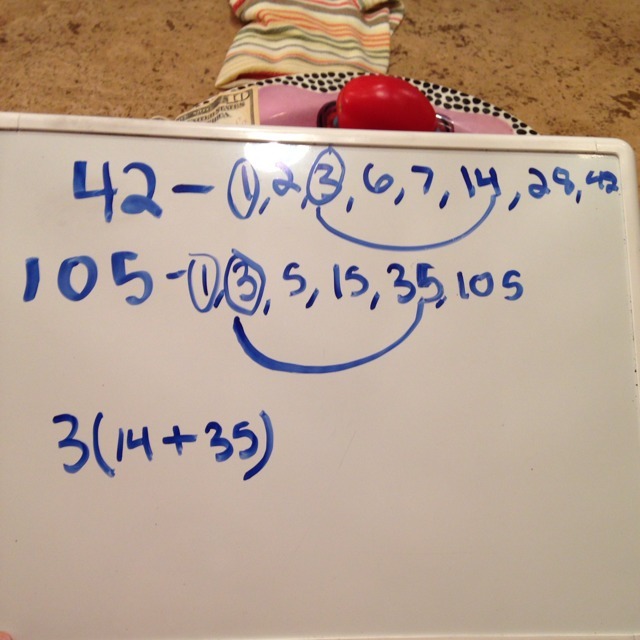 42 - 1, 2, 3, 6, 7, 14, 28, 42
105 - 1, 3, 5, 15, 35, 105
3(14 + 35)